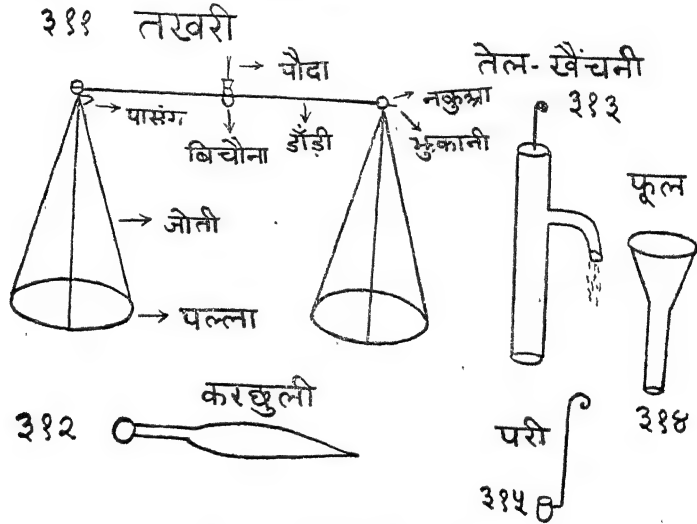 ३११ तखरी
पौदा
पासंग
बिचौना
डाँड़ी
नकुआ
झुकानी
जोती
पल्ला
तेल-खैंचनी
३१३
फूल
३१४
करछुली
३१२
परी
३१५